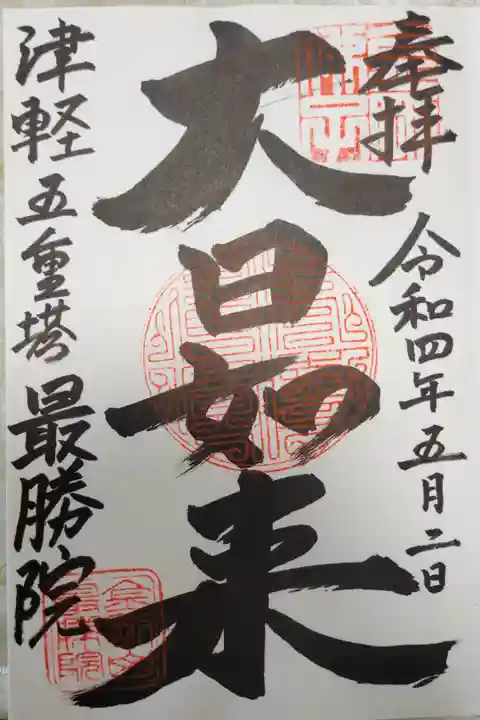 奉拝
令和四年五月二日
大日如来
津軽五重塔 最勝院